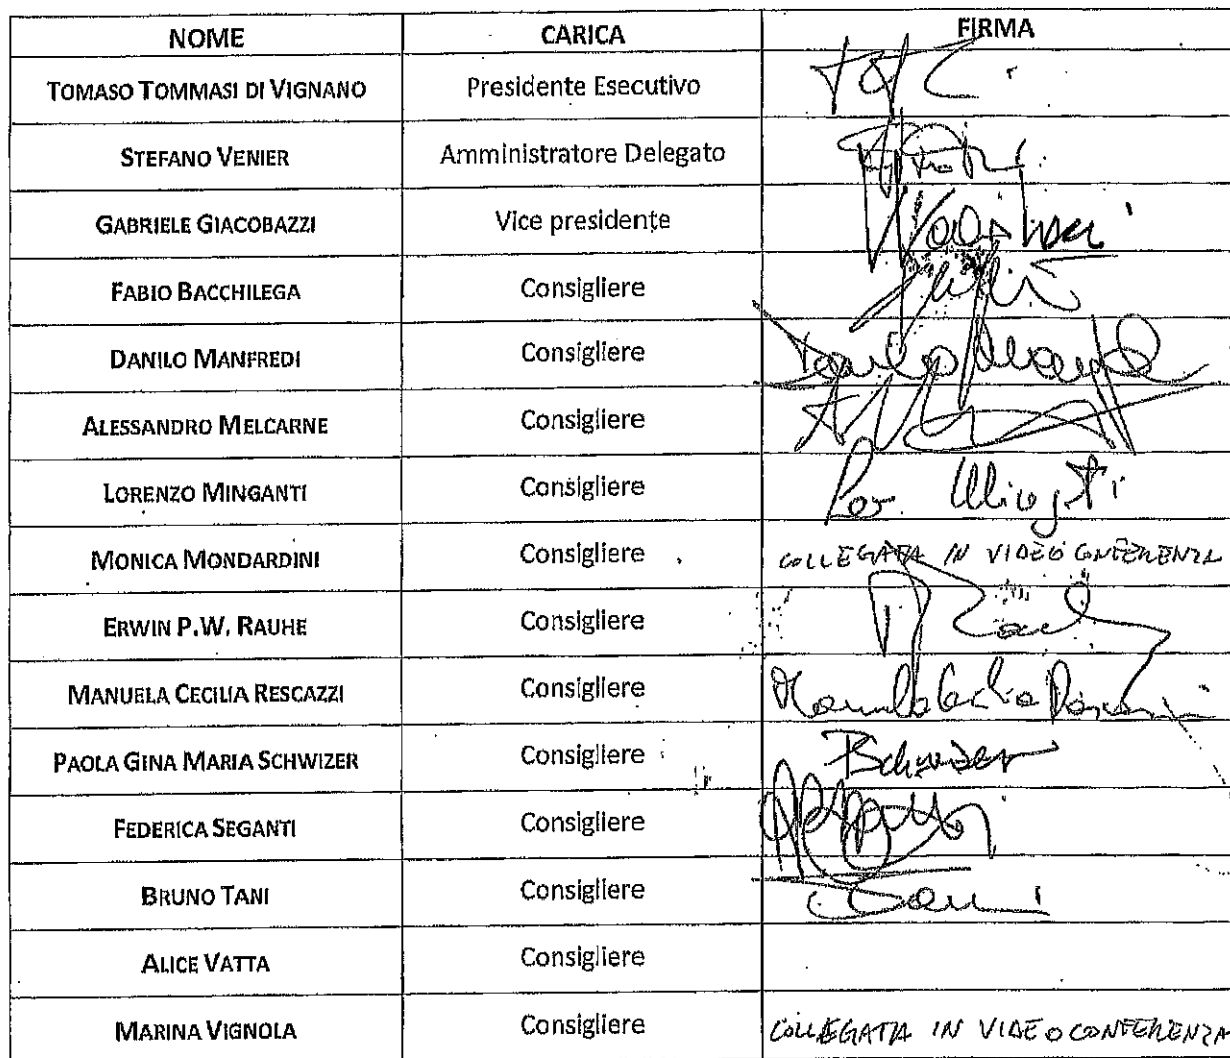 NOME CARICA FIRMA
TOMASO TOMMASI DI VIGNANO Presidente Esecutivo
STEFANO VENIER Amministratore Delegato
GABRIELE GIACOBAZZI Vice presidente
FABIO BACCHILEGA Consigliere
DANILO MANFREDI Consigliere
ALESSANDRO MELCARNE Consigliere
LORENZO MINGANTI Consigliere
MONICA MONDARDINI Consigliere COLLEGATA IN VIDEO CONFERENZA
ERWIN P.W. RAUHE Consigliere
MANUELA CECILIA RESCAZZI Consigliere
PAOLA GINA MARIA SCHWIZER Consigliere
FEDERICA SEGANTI Consigliere
BRUNO TANI Consigliere
ALICE VATTA Consigliere
MARINA VIGNOLA Consigliere COLLEGATA IN VIDEOCONFERENZA